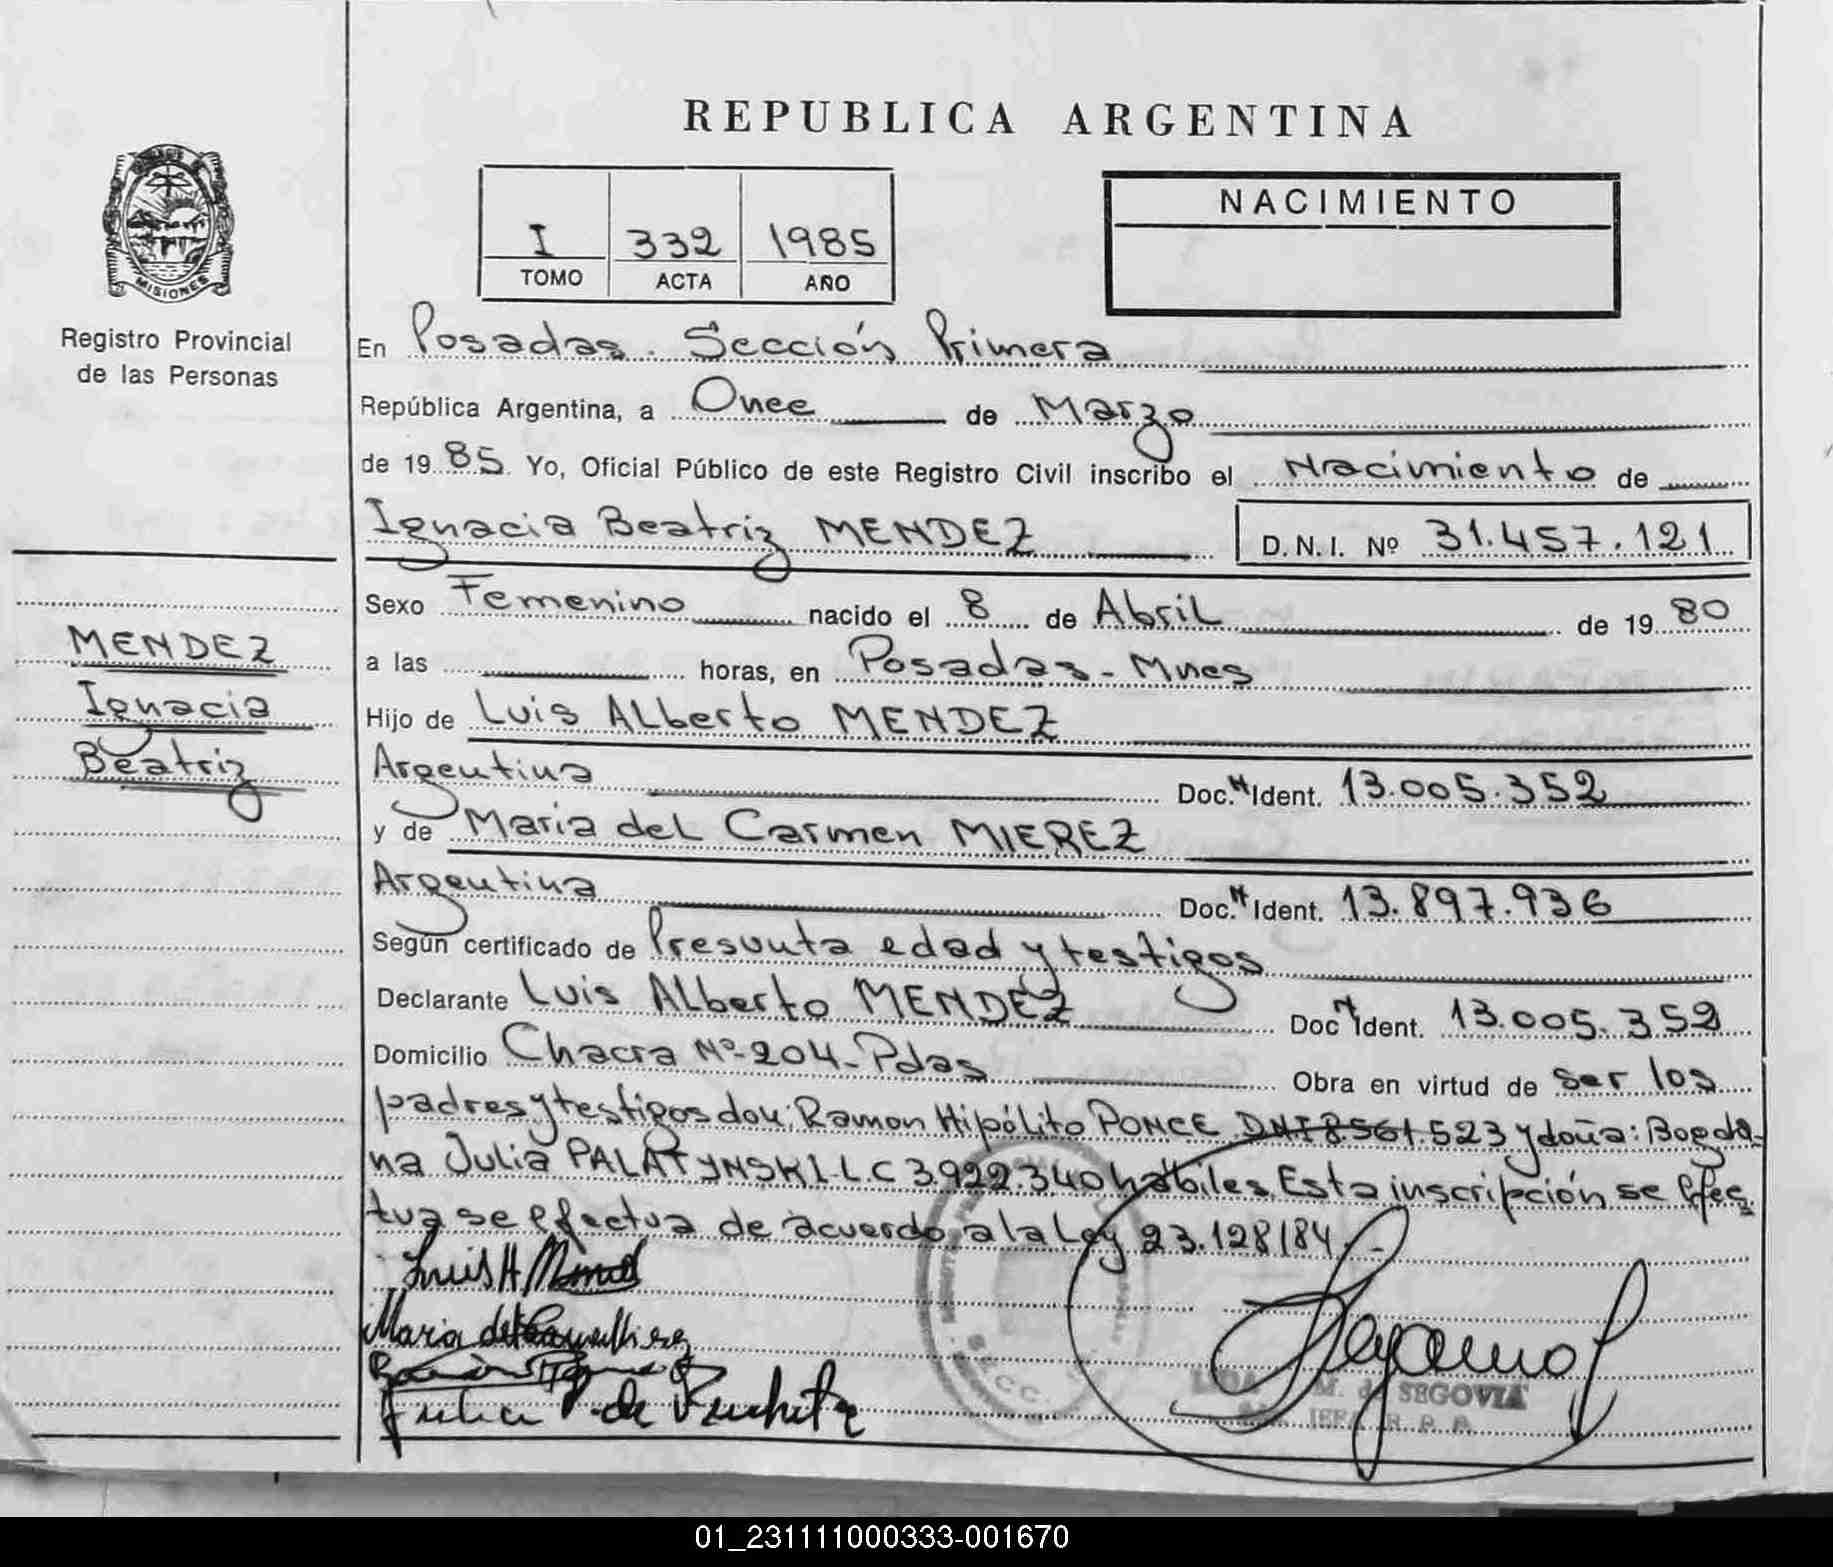 REPUBLICA ARGENTINA
I 332 1985
TOMO ACTA AÑO
NACIMIENTO
MISIONES
Registro Provincial
de las Personas
En Posadas. Sección Primera
República Argentina, a Once de Marzo
de 1985. Yo, Oficial Público de este Registro Civil inscribo el Nacimiento de
Ignacia Beatriz MENDEZ D.N.I. Nº 31.457.121
Sexo Femenino nacido el 8 de Abril de 1980
a las horas, en Posadas - Mnes
Hijo de Luis Alberto MENDEZ
Argentina Doc. N Ident. 13.005.352
y de Maria del Carmen MIEREZ
Argentina Doc. N Ident. 13.897.936
Según certificado de Presunta edad y testigos
Declarante Luis Alberto MENDEZ Doc N Ident. 13.005.352
Domicilio Chacra Nº 204 - Pdas Obra en virtud de ser los
padres y testigos don: Ramon Hipólito PONCE DNI 8.561.523 y doña: Bogda-
na Julia PALATYNSKI L.C 3.922.340 hábiles. Esta inscripción se efec
tua se efectua de acuerdo a la Ley 23.128/84.-
MENDEZ
Ignacia
Beatriz
Luis A Mendez
Maria del Carmen Mierez
M. de SEGOVIA
01_231111000333-001670